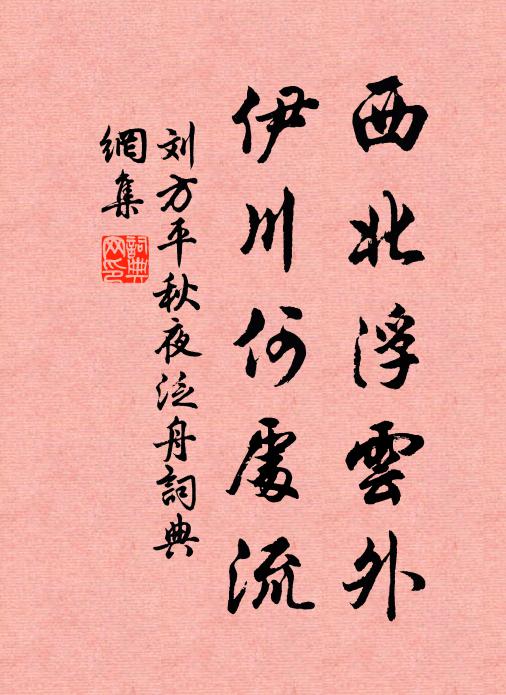 西北浮雲外
伊川何處流
刘方平秋夜泛舟詞典
網集
詞典
网印